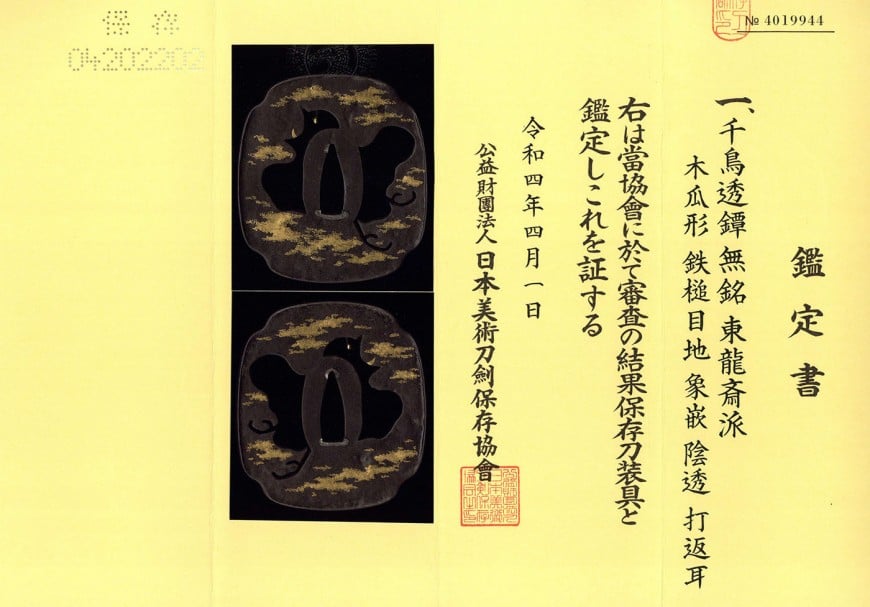 № 4019944
鑑定書
一、千鳥透鐔 無銘 東龍斎派
木瓜形 鉄槌目地 象嵌 陰透 打返耳
右は當協會に於て審査の結果保存刀装具と
鑑定しこれを証する
令和四年四月一日
公益財團法人 日本美術刀劍保存協會
保存
04202202